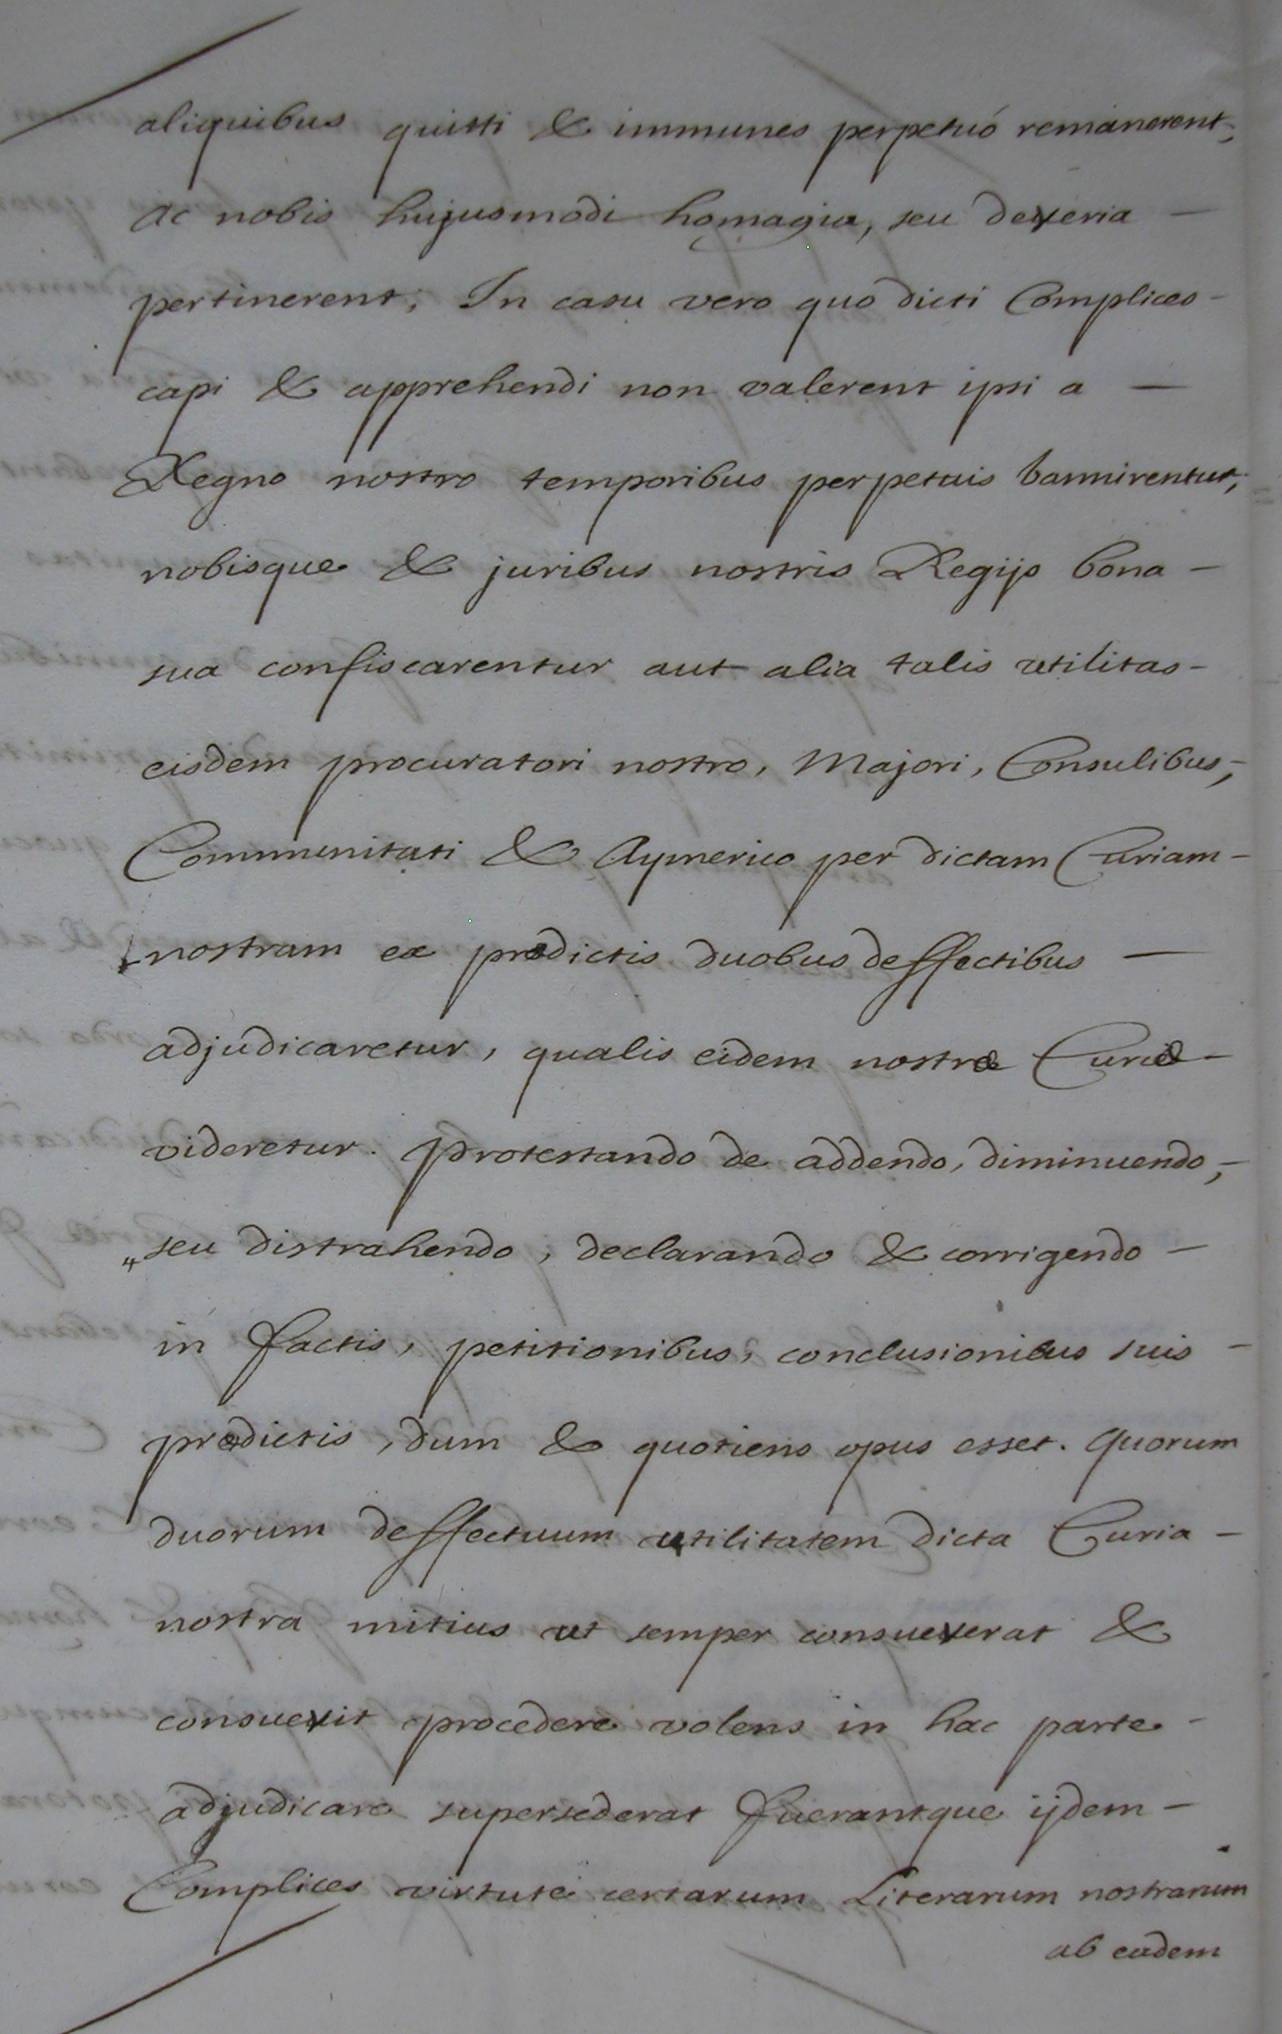 aliquibus quitti & immunes perpetuó remanerent,
ac nobis hujusmodi homagia, seu deveria —
pertinerent; In casu vero quo dicti Complices -
capi & apprehendi non valerent ipsi a —
Regno nostro temporibus perpetuis bannirentur,
nobisque & juribus nostris Regijs bona -
sua confiscarentur aut alia talis utilitas -
eisdem procuratori nostro, Majori, Consulibus,
Communitati & Aymerico per dictam Curiam -
nostram ex prædictis duobus deffectibus —
adjudicaretur, qualis eidem nostræ Curiæ -
videretur. protestando de addendo, diminuendo,
seu distrahendo, declarando & corrigendo —
in factis, petitionibus, conclusionibus suis -
prædictis, dum & quotiens opus esset. quorum
duorum deffectuum utilitatem dicta Curia -
nostra mitius ut semper consueverat &
consuevit procedere volens in hac parte -
adjudicare supersederat fuerantque ijdem -
Complices virtute certarum Literarum nostrarum
ab eadem